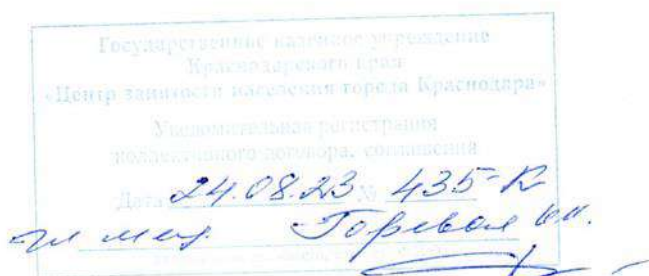 Государственное казенное учреждение
Краснодарского края
«Центр занятости населения города Краснодара»
Уведомительная регистрация
коллективного договора, соглашения
Дата 24.08.23 № 435-К
гл